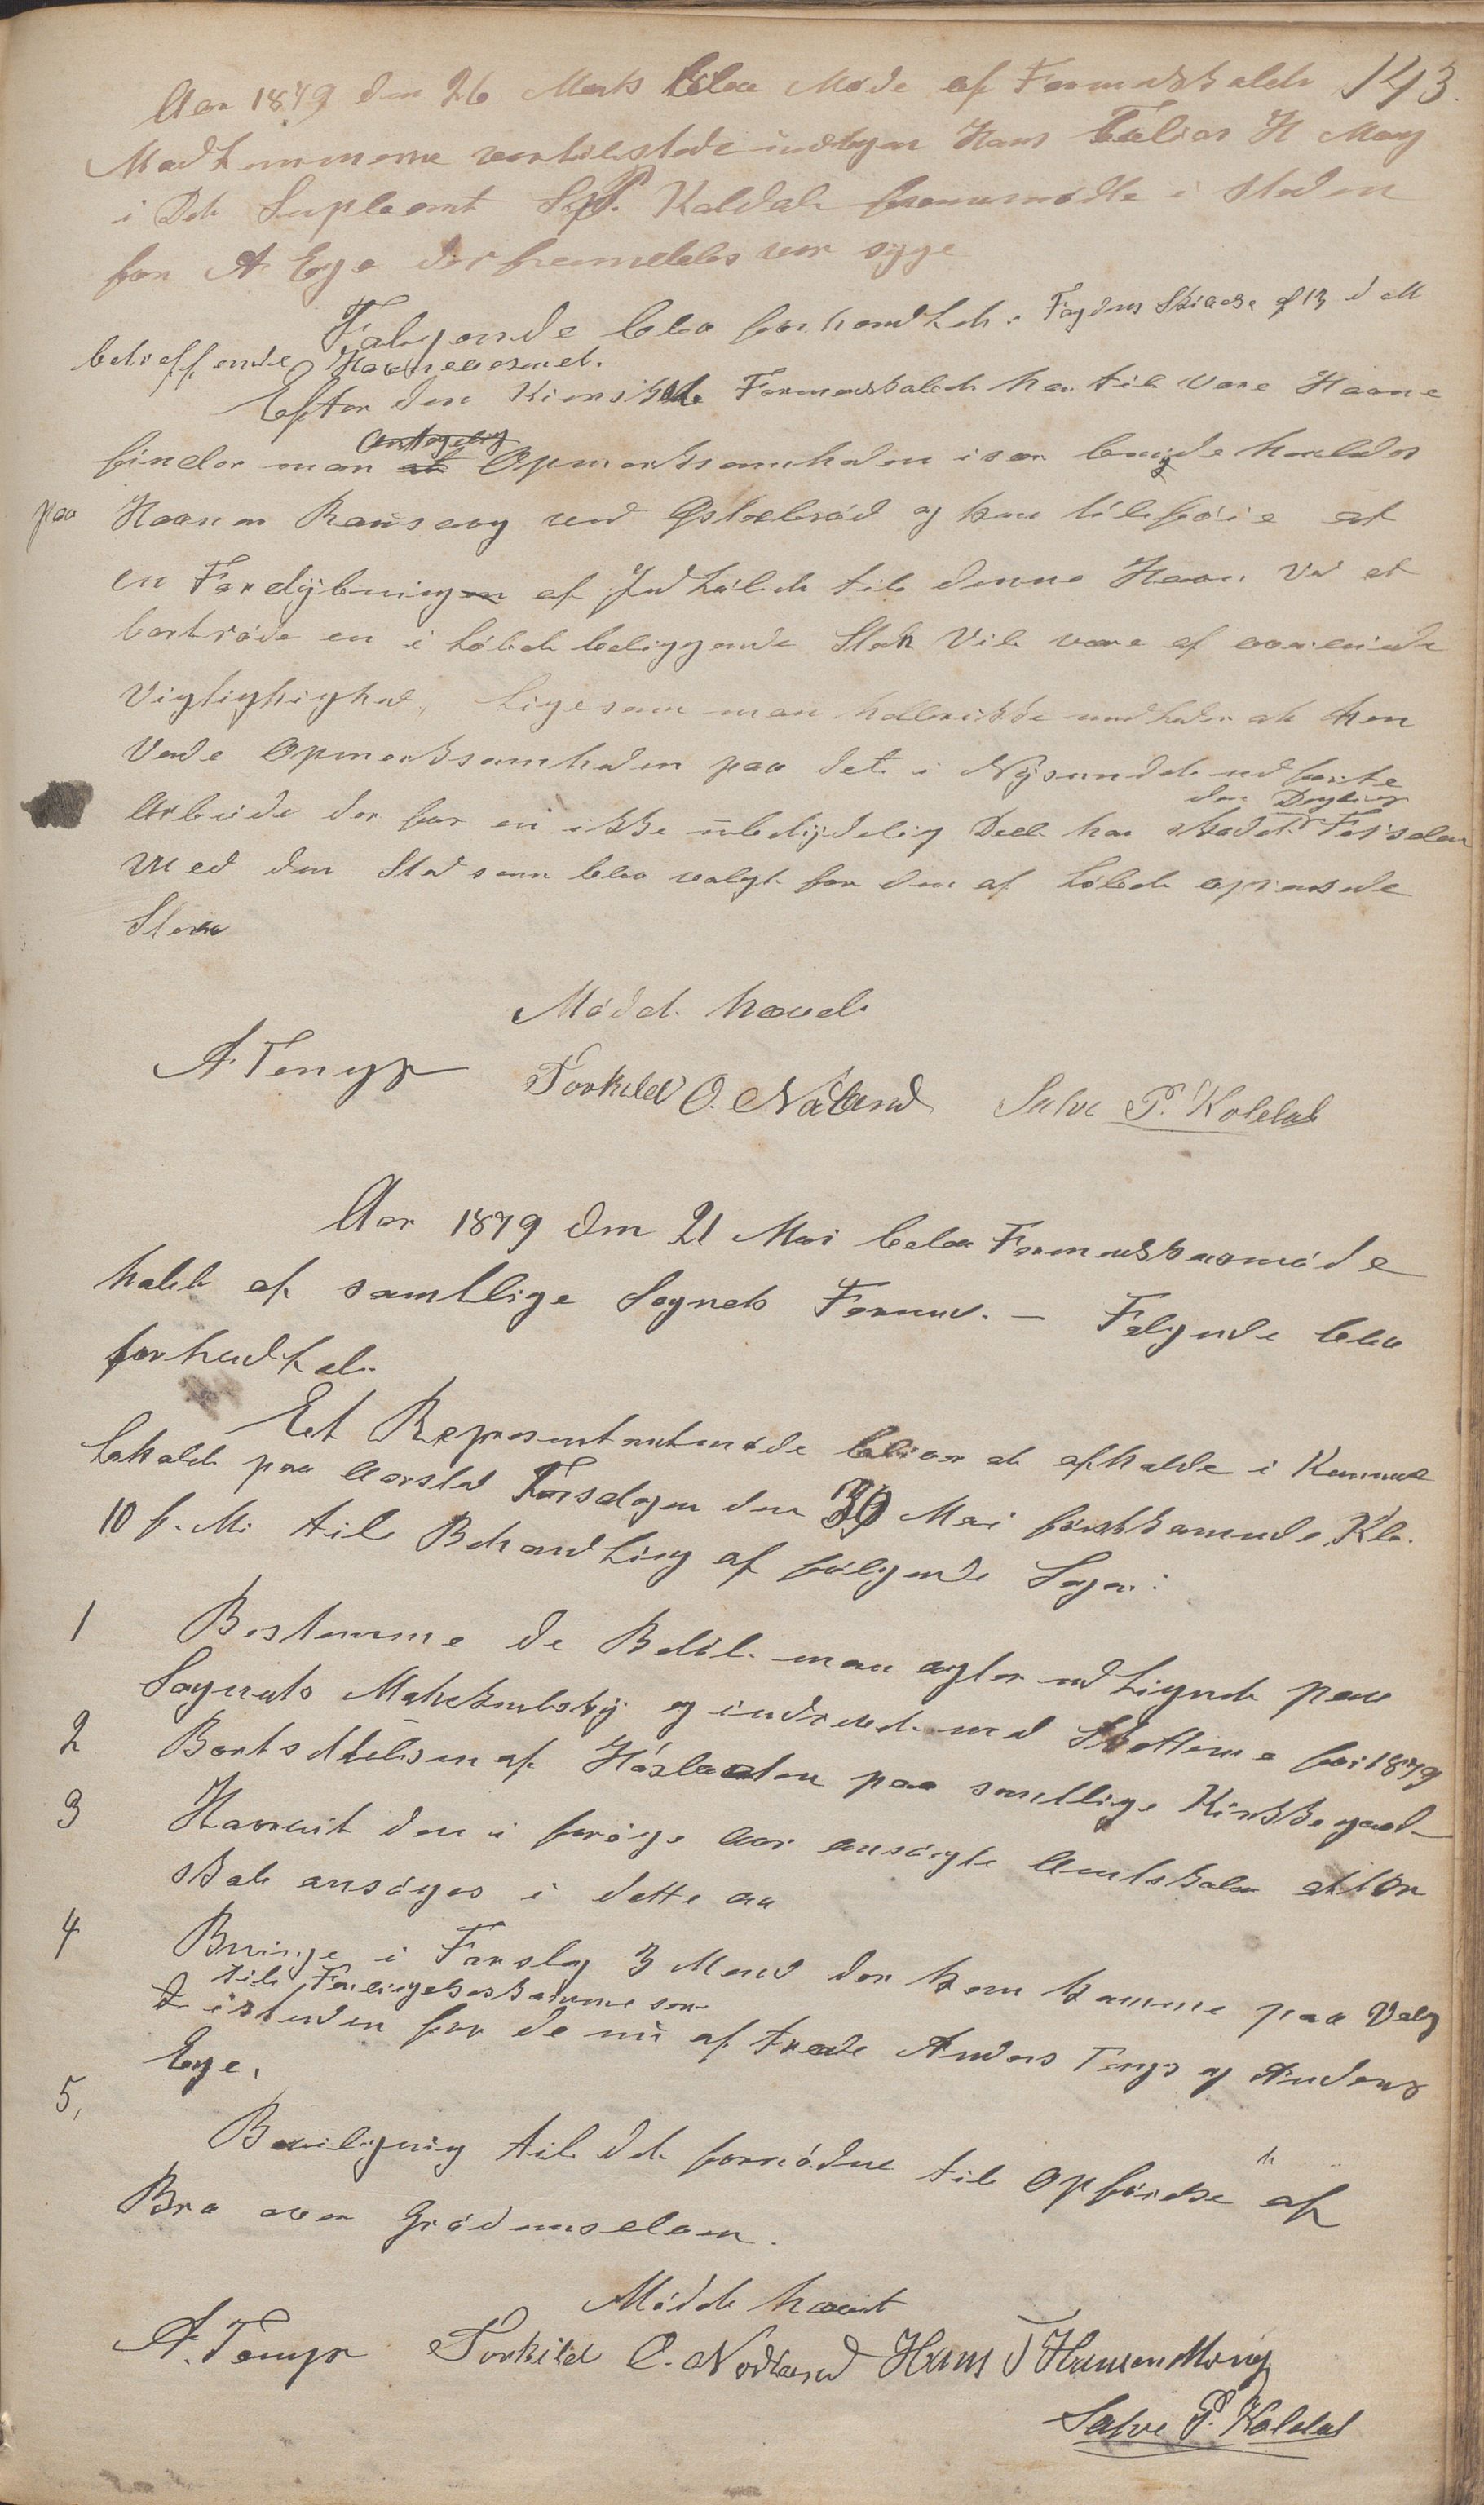 143.
Aar 1879 den 26 Marts blev Møde af Formandskabet
Medlemmerne var tilstede undtagen Hans Tobias H Mong
i Det Supleant S. P. Koldal fremmødte i Steden
for A Ege der fremdeles var syge
Følgende blev forhandlet: Fogdens Skrivelse af 13 d M
betreffende Havnevesenet.
Efter den Kienskab Formandskabet har til vore Havne
finder man Opmerksomheden især burde henledes
paa Havnen Rausvaag ved Østrebrød og kan tilføie at
en Fordybning af Indløbet til denne Havn ved at
bortrøde en i Løbet beliggende Sten vil være af væsentlig
Vigtighighed, Ligesom man ikke undlader at hen
vende Opmerksomheden paa det i Nysundet udførte
den Dygtige
Arbeide der for en ikke ubetydelig Deel har skadet Feiselen
med den Sted som blev valgt for den af Løbet oprensede
Stene
Mødet hævet
A. Tengs Torkild O. Nodland Salve P. Koldal
Aar 1879 den 21 Mai blev Formandskabsmøde
holdt af samtllige Sognets Formend. - Følgende blev
forhandlet.
Et Representantmøde bliver at afholde i Kommune
Lokalet paa Aarstad Torsdagen den 30 Mai førstkommende Kl.
10 f. M. til Behandling af følgende Sager:
1 Bestemme de Beløb man agter udlignet paa
Sognets Matrikulskyl og inddrevet med Skatterne for 1879
2 Bortsettelsen af Høslaatten paa samtllige Kirkkegaard
3 Hvorvit den i forige Aar ansøgte Amtsskole atter
skal ansøges i dette aar
4 Bringe i Forslag 3 Mend der kan komme paa Valg
til Forligelseskommisser
isteden for de nu aftræde Anders Tengs og Anders
Ege.
5, Bevilgning til det fornødne til Opførelse af
Bro over Grødemselven.
Mødet hævet
A. Tengs Torkild O. Nodland Hans T Hansen Mong
Salve P. Koldal